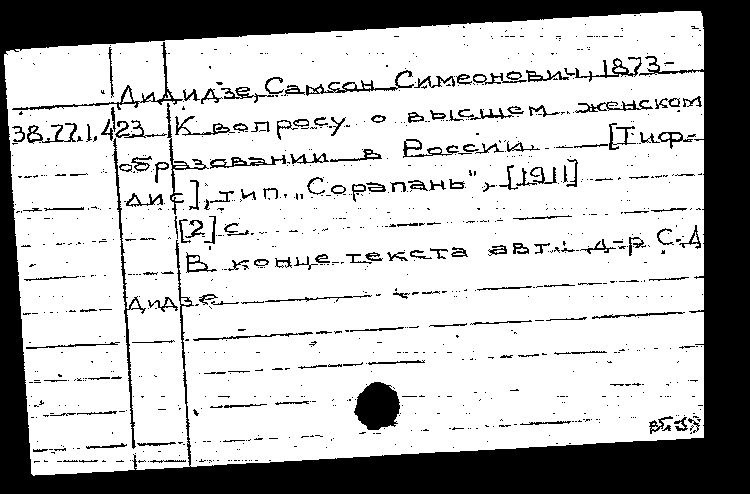 Дидидзе, Самсон Симеонович, 1873-
38.77.1.423 К вопросу о высшем женском
образовании в России. [Тиф-
лис], тип. „Сорапань", [1911]
[2] с.
В конце текста авт.: д-р С. Д
дидзе